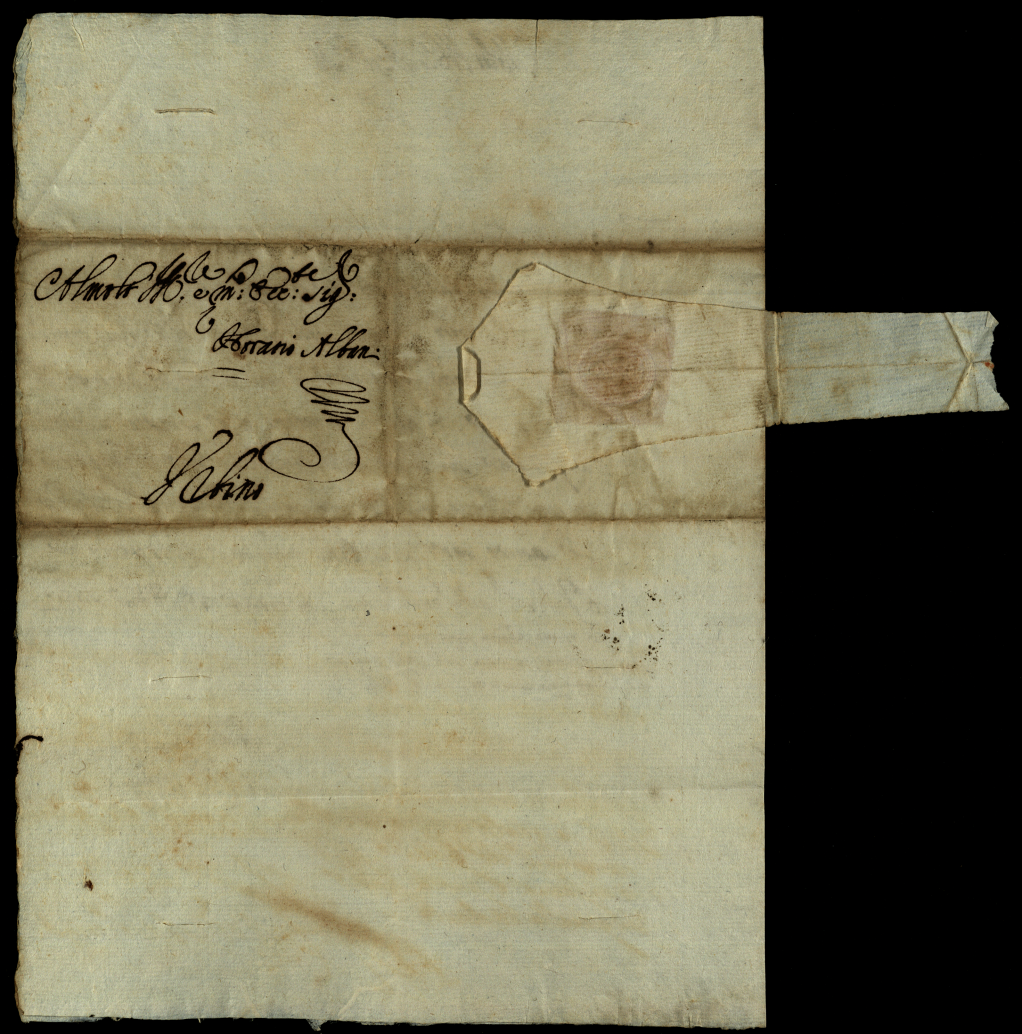 Al molto Ill.re e m: Ecc:te sig:r
Horatio Alban:
Vrbino